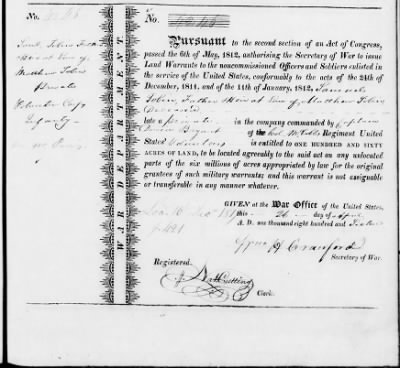 No.
No.
Saml Tobin Father
Matthew Tobin
Private
Volunteer Corps
Infantry
WAR DEPARTMENT.
Pursuant to the second section of an Act of Congress,
passed the 6th of May, 1812, authorising the Secretary of War to issue
Land Warrants to the noncommissioned Officers and Soldiers enlisted in
the service of the United States, conformably to the acts of the 24th of
December, 1811, and of the 11th of January, 1812, Samuel
Tobin, Father Heir at Law of Matthew Tobin
Deceased
late a private in the company commanded by Captain
Bryant of the Regiment United
States Volunteers is entitled to ONE HUNDRED AND SIXTY
ACRES OF LAND, to be located agreeably to the said act on any unlocated
parts of the six millions of acres appropriated by law for the original
grantees of such military warrants; and this warrant is not assignable
or transferable in any manner whatever.
GIVEN at the War Office of the United States,
this 26 day of
A. D. one thousand eight hundred and
Wm H Crawford
Secretary of War.
Registered.
Nutting
Clerk.